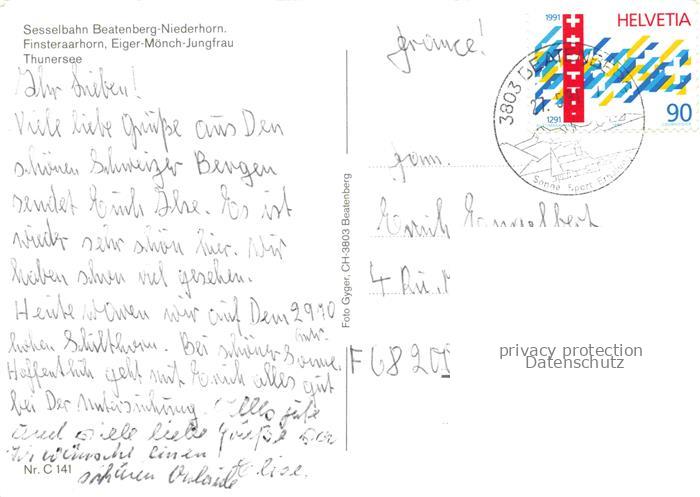 Sesselbahn Beatenberg-Niederhorn.
Finsteraarhorn, Eiger-Mönch-Jungfrau
Thunersee
Ihr Lieben!
Viele liebe Grüße aus Den
schönen Schweizer Bergen
sendet Euch Ilse. Es ist
wieder sehr schön hier. Wir
haben schon viel gesehen.
Heute waren wir auf Dem 2970
hohen Schilthorn. Bei schöner
Sonne.
Hoffentlich geht mit Euch alles gut
bei Der Untersuchung. Alles gute
und viele liebe Grüße
Wir wünsche einen
schönen
Nr. C 141
Foto Gyger, CH-3803 Beatenberg
france!
1991
1291
HELVETIA
90
3803 BEATENBERG
Sonne Sport
fam.
4 Ru.
F 6820
privacy protection
Datenschutz